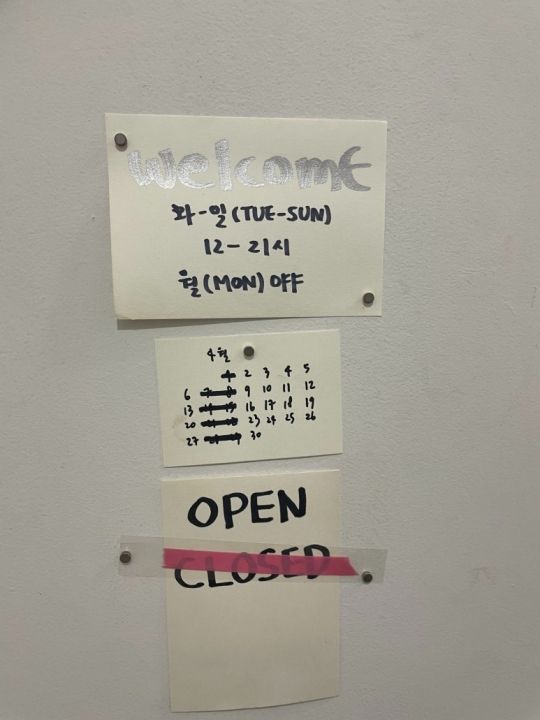 welcome
화-일(TUE-SUN)
12-21시
월(MON) OFF
4월
2 3 4 5
6 9 10 11 12
13 16 17 18 19
20 23 24 25 26
27 30
OPEN
CLOSED